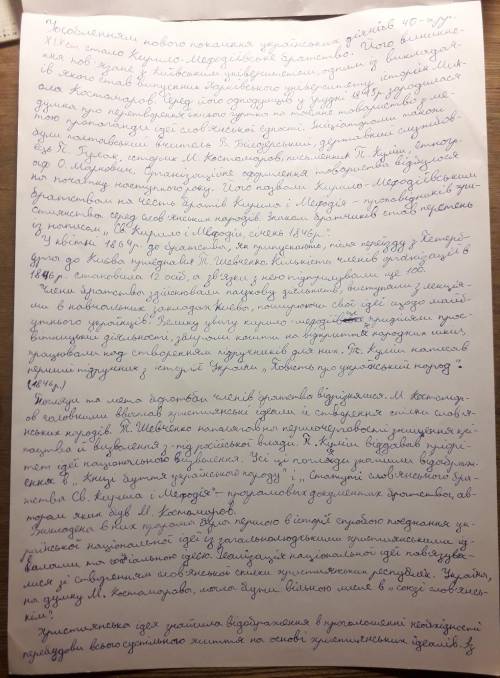 Уособленням нового покоління українських діячів 40-х рр.
XIX ст. стало Кирило-Мефодіївське братство. Його виникне-
ння пов'язане з Київським університетом, одним з викладач-
ів якого став випускник Харківського університету, історик Мик-
ола Костомаров. Серед його однодумців у грудні 1845р зародилася
думка про перетворення їхнього гуртка на таємне товариство з ме-
тою пропаганди ідеї слов'янської єдності. Ініціаторами також
були полтавський вчитель В. Білозерський, державний службов-
ець М. Гулак, історик М. Костомаров, письменник П. Куліш, етногр-
аф О. Маркович. Організаційне оформлення товариства відбулося
на початку наступного року. Його назвали Кирило-Мефодіївським
братством на честь братів Кирила і Мефодія - проповідників хри-
стиянства серед слов'янських народів. Знаком братчиків став перстень
із написом „Св. Кирило і Мефодій, січень 1846р".
У квітні 1864р. до братства, як припускають, після переїзду з Петерб-
урга до Києва приєднався Т. Шевченко. Кількість членів організації в
1846р. становила 12 осіб, а зв'язки з нею підтримували ще 100.
Члени братства здійснювали наукову діяльність, виступали з лекція-
ми в навчальних закладах Києва, поширюючи свої ідеї щодо майб-
утнього українців. Велику увагу кирило-мефодіївці приділяли прос-
вітницькій діяльності, збирали кошти на відкриття народних шкіл,
працювали над створенням підручників для них. П. Куліш написав
перший підручник з історії України „Повість про український народ".
(1846р.)
Погляди та мета боротьби членів братства відрізнялися. М. Костомар-
ов головними вважав християнські ідеали й створення спілки слов'я-
нських народів. Т. Шевченко наполягав на першочерговості знищення крі-
пацтва й визволення з-під російської влади. П. Куліш віддавав пріори-
тет ідеї національного визволення. Усі ці погляди знайшли відображ-
ення в „Книзі буття українського народу" і „Статуті слов'янського бра-
тства Св. Кирила і Мефодія" - програмових документах братства, ав-
тором яких був М. Костомаров.
Викладена в них програма була першою в історії спробою поєднання ук-
раїнської національної ідеї із загальнолюдськими християнськими ід-
еалами та соціальною ідеєю. Реалізація національної ідеї пов'язува-
лися зі створенням слов'янської спілки християнських республік. Україна,
на думку М. Костомарова, могла бути вільною лише в „союзі слов'янсь-
кім".
Християнська ідея знайшла відображення в проголошенні необхідності
перебудови всього суспільного життя на основі християнських ідеалів. Із